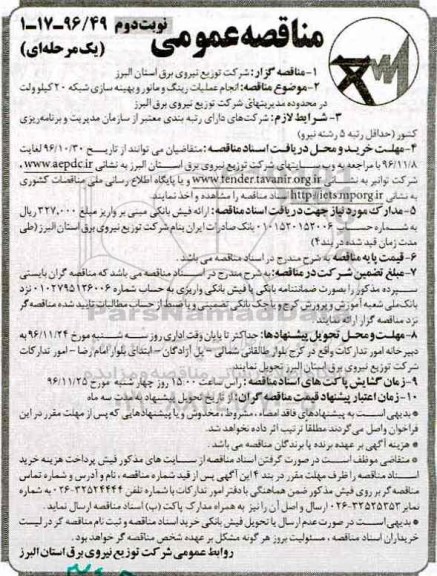 مناقصه عمومی
نوبت دوم
۱-۱۷-۹۶/۴۹
(یک مرحله‌ای)
۱-مناقصه گزار: شرکت توزیع نیروی برق استان البرز
۲-موضوع مناقصه: انجام عملیات رینگ و مانور و بهینه سازی شبکه ۲۰ کیلوولت
در محدوده مدیریتهای شرکت توزیع نیروی برق البرز
۳- شرایط لازم: شرکت‌های دارای رتبه بندی معتبر از سازمان مدیریت و برنامه‌ریزی
کشور (حداقل رتبه ۵ رشته نیرو)
۴-مهلت خرید و محل دریافت اسناد مناقصه: متقاضیان می توانند از تاریخ ۹۶/۱۰/۳۰ لغایت
۹۶/۱۱/۸ با مراجعه به وب سایتهای شرکت توزیع نیروی برق استان البرز به نشانی www.aepdc.ir،
شرکت توانیر به نشانی www.tender.tavanir.org.ir و یا پایگاه اطلاع رسانی ملی مناقصات کشوری
به نشانی http://iets.mporg.ir اسناد مناقصه را مشاهده و اخذ نمایند.
۵-مدارک مورد نیاز جهت دریافت اسناد مناقصه: ارائه فیش بانکی مبنی بر واریز مبلغ ۳۲۷،۰۰۰ ریال
به شماره حساب ۰۱۰۱۵۲۰۱۵۲۰۰۶ بانک صادرات ایران بنام شرکت توزیع نیروی برق استان البرز (طی
مدت زمان قید شده در بند۴)
۶-قیمت پایه مناقصه به شرح مندرج در اسناد مناقصه می باشد.
۷-مبلغ تضمین شرکت در مناقصه: به شرح مندرج در اسناد مناقصه می باشد که مناقصه گران بایستی
سپرده مذکور را بصورت ضمانتنامه بانکی یا فیش بانکی واریزی به حساب شماره ۰۱۰۲۷۹۵۱۳۶۰۰۶ نزد
بانک ملی شعبه آموزش و پرورش کرج و یا چک بانکی تضمینی و یا ضبط از حساب مطالبات تایید شده مناقصه‌گر
نزد مناقصه گزار ارائه نمایند.
۸-مهلت و محل تحویل پیشنهادها: حداکثر تا پایان وقت اداری روز سه شنبه مورخ ۹۶/۱۱/۲۴ به
دبیرخانه امور تدارکات واقع در کرج بلوار طالقانی شمالی – پل آزادگان – ابتدای بلوار امام رضا – امور تدارکات
شرکت توزیع نیروی برق استان البرز تحویل نمایند.
۹-زمان گشایش پاکت های اسناد مناقصه: راس ساعت ۱۵:۰۰ روز چهار شنبه مورخ ۹۶/۱۱/۲۵
۱۰-زمان اعتبار پیشنهاد قیمت مناقصه گران: از تاریخ تحویل پیشنهاد به مدت سه ماه
* بدیهی است به پیشنهادهای فاقد امضاء، مشروط، مخدوش و یا پیشنهادهایی که پس از مهلت مقرر در این
فراخوان واصل می گردند مطلقا ترتیب اثر داده نخواهد شد.
* هزینه آگهی بر عهده برنده یا برندگان مناقصه می باشد.
* متقاضی موظف است در صورت گرفتن اسناد مناقصه از سایت های مذکور فیش پرداخت هزینه خرید
اسناد مناقصه را ظرف مهلت مقرر در بند ۴ این آگهی پس از قید شماره مناقصه، نام و آدرس و شماره تماس
مناقصه گر بر روی فیش مذکور ضمن هماهنگی با دفتر امور تدارکات با شماره تلفن ۳۲۵۲۴۴۴۴-۰۲۶ به شماره
نمابر ۳۲۵۲۵۳۵۳-۰۲۶ ارسال و اصل آن را نیز به همراه مدارک پاکت (ب) اسناد مناقصه ارسال نماید.
* بدیهی است در صورت عدم ارسال یا تحویل فیش بانکی خرید اسناد مناقصه و ثبت نام مناقصه گر در لیست
خریداران اسناد مناقصه، مسئولیت بروز هر گونه مشکل بر عهده شخص مناقصه گر خواهد بود.
روابط عمومی شرکت توزیع نیروی برق استان البرز